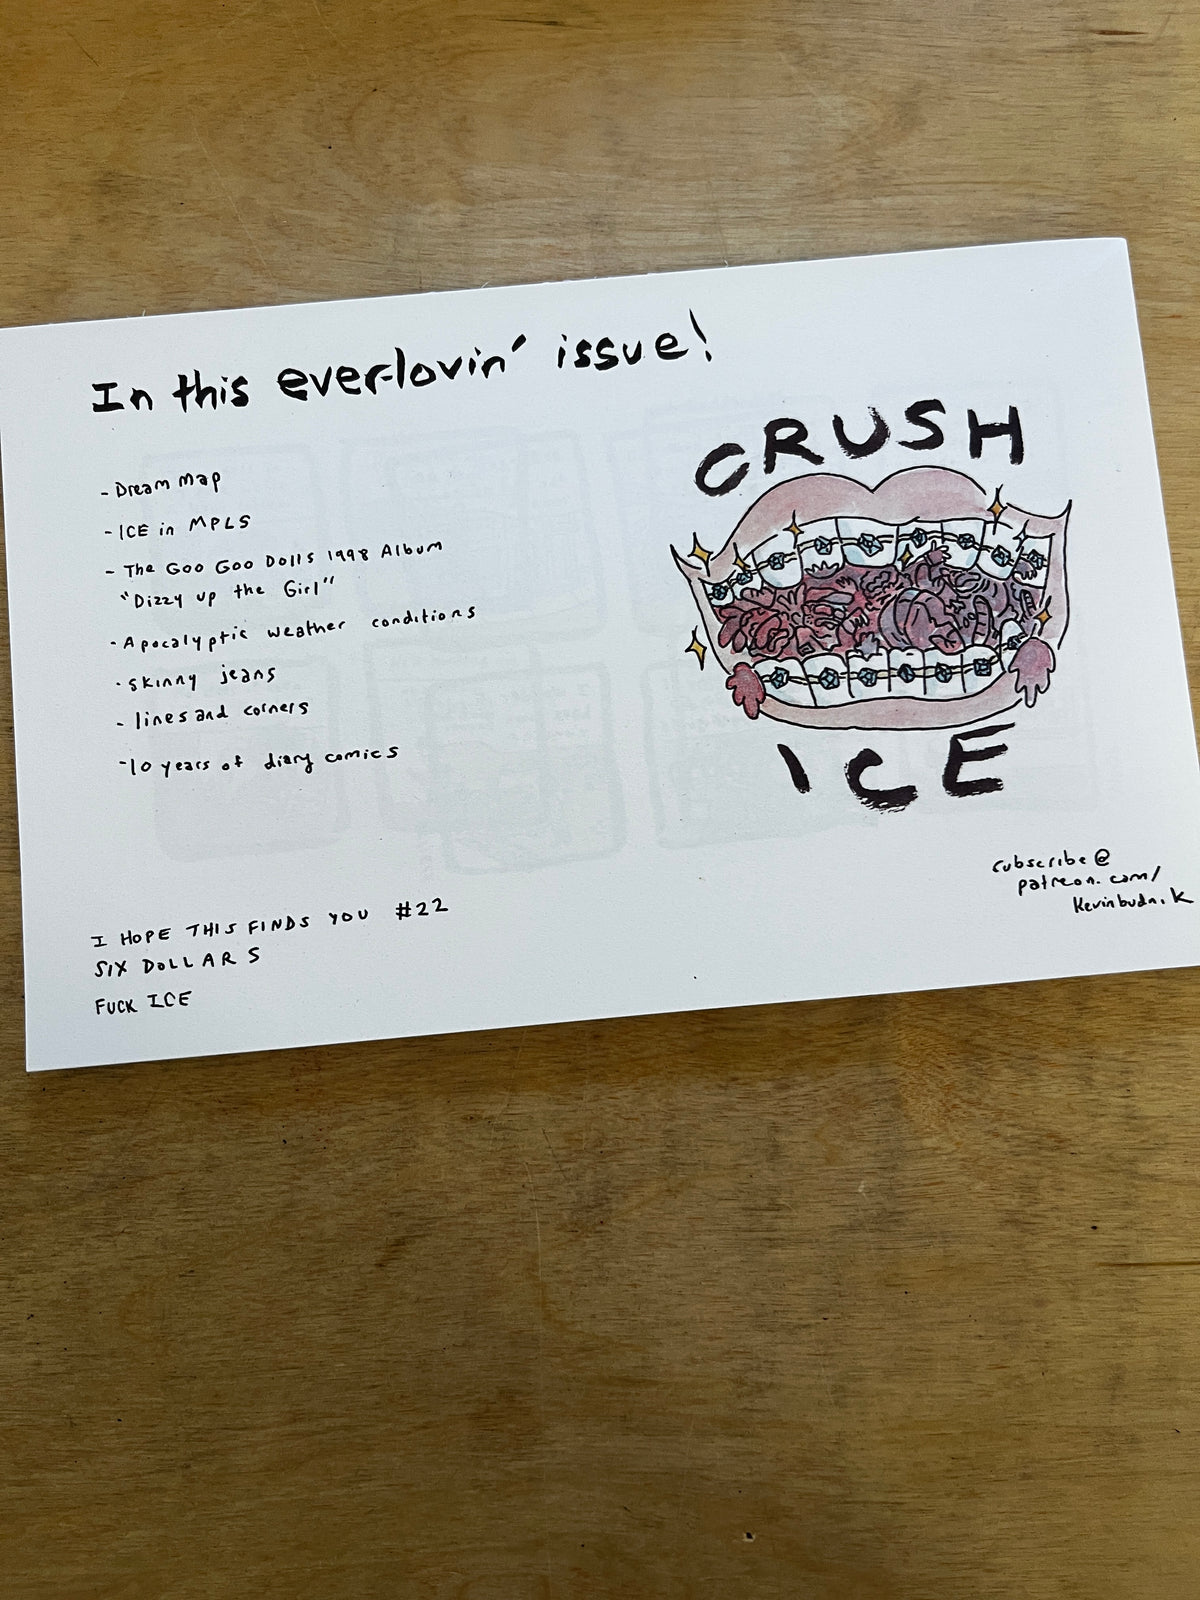 In this ever-lovin' issue!
- Dream Map
- ICE in MPLS
- The Goo Goo Dolls 1998 Album
"Dizzy up the Girl"
- Apocalyptic weather conditions
- skinny jeans
- lines and corners
- 10 years of diary comics
CRUSH
ICE
subscribe @
patreon.com/
Kevinbudnik
I HOPE THIS FINDS YOU #22
SIX DOLLARS
FUCK ICE